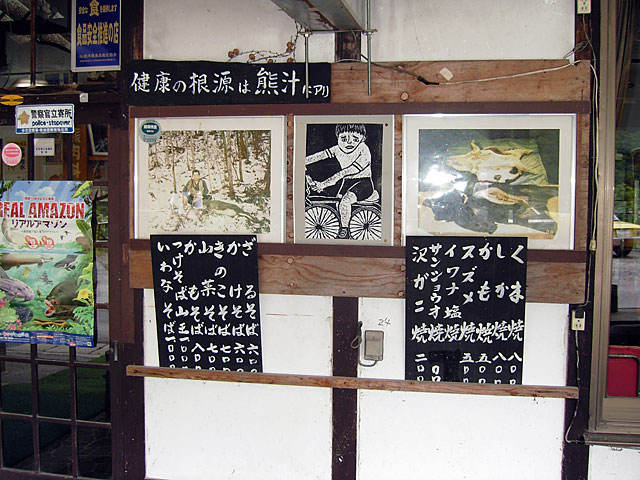 食品安全推進の店
健康の根源は熊汁ニアリ
警察官立寄所
police-stopover
REAL AMAZON
リアルアマゾン
ざるそば 六〇〇
かけそば 六〇〇
きのこそば 七〇〇
山菜そば 七〇〇
かもそば 八〇〇
つけそば
いわなそば 一〇〇〇
くま焼 八〇〇
しか焼 八〇〇
かも焼 五〇〇
スズメ焼 五〇〇
イワナ塩焼
サンショウオ焼
沢がニ焼 二〇〇
24